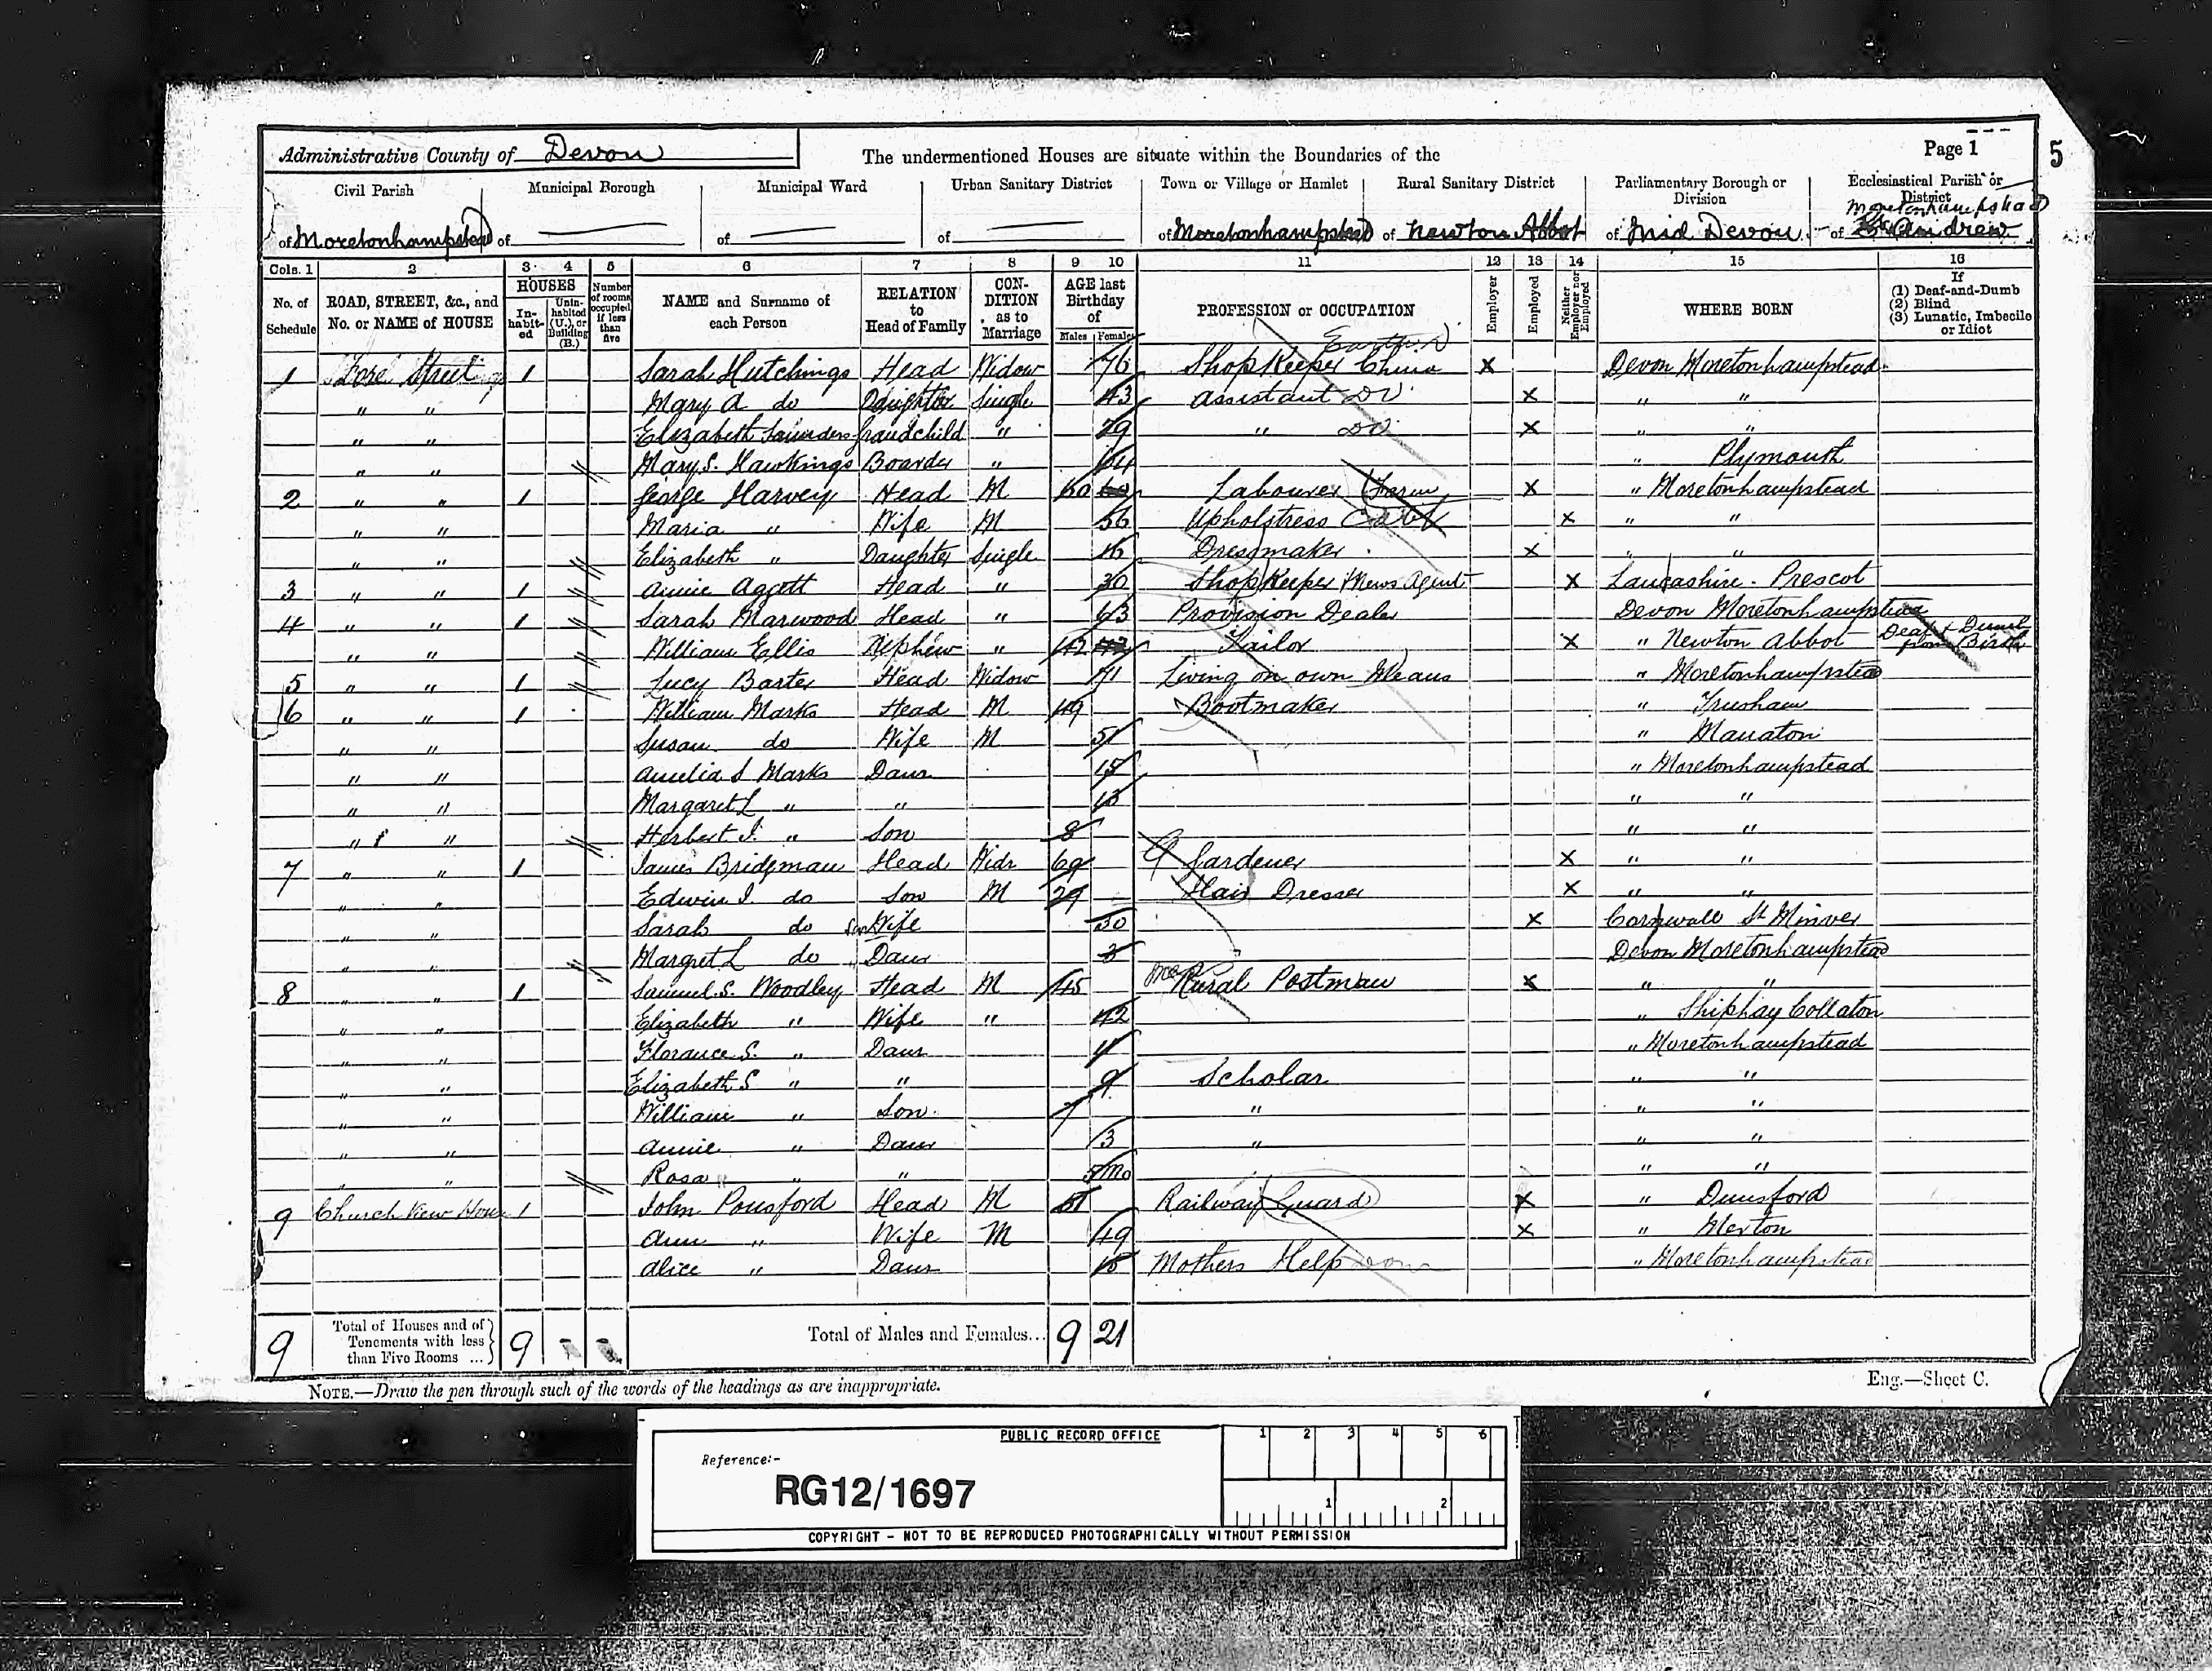 Page 1
5
Administrative County of Devon
The undermentioned Houses are situate within the Boundaries of the
Civil Parish Municipal Borough Municipal Ward Urban Sanitary District Town or Village or Hamlet Rural Sanitary District Parliamentary Borough or Division Ecclesiastical Parish or District
of Moretonhampstead of of of of Moretonhampstead of Newton Abbot of Mid Devon of Moretonhampstead St Andrew
Cols. 1 2 3 4 5 6 7 8 9 10 11 12 13 14 15 16
No. of Schedule ROAD, STREET, &c., and No. or NAME of HOUSE HOUSES In-habit-ed Unin-habited (U.), or Building (B.) Number of rooms occupied if less than five NAME and Surname of each Person RELATION to Head of Family CON-DITION as to Marriage AGE last Birthday of Males Females PROFESSION or OCCUPATION Employer Employed Neither Employer nor Employed WHERE BORN If (1) Deaf-and-Dumb (2) Blind (3) Lunatic, Imbecile or Idiot
1 Fore Street 1 Sarah Hutchings Head Widow 76 Shop Keeper China X Devon Moretonhampstead
" " Mary A do Daughter Single 43 Assistant Do X " "
" " Elizabeth Saunders Grandchild " 29 " Do X " "
" " Mary S. Hawkings Boarder " 64 " Plymouth
2 " " 1 George Harvey Head M 60 60 Labourer Farm X " Moretonhampstead
" " Maria " Wife M 56 Upholstress X " "
" " Elizabeth " Daughter Single 16 Dressmaker X " "
3 " " 1 Annie Aggett Head " 30 Shop Keeper & News Agent X Lancashire Prescot
4 " " 1 Sarah Marwood Head " 63 Provision Dealer Devon Moretonhampstead
" " William Ellis Nephew " 42 42 Tailor X " Newton Abbot Deaf & Dumb from Birth
5 " " 1 Lucy Barter Head Widow 71 Living on own Means " Moretonhampstead
6 " " 1 William Marks Head M 49 Bootmaker " Trusham
" " Susan do Wife M 51 " Manaton
" " Amelia S Marks Daur 15 " Moretonhampstead
" " Margaret L " " 13 " "
" " Herbert J. " Son 8 " "
7 " " 1 James Bridgman Head Widr 69 Gardener X " "
" " Edwin J. do Son M 29 Hair Dresser X " "
" " Sarah do Wife 30 X Cornwall St Minver
" " Margret L do Daur 3 Devon Moretonhampstead
8 " " 1 Samuel S. Woodley Head M 45 Rural Postman X " "
" " Elizabeth " Wife " 42 " Shiphay Collaton
" " Florance S. " Daur 11 " Moretonhampstead
" " Elizabeth S " " 9 Scholar " "
" " William " Son 7 " " "
" " Annie " Daur 3 " " "
" " Rosa " " 5 Mo " "
9 Church View House 1 John Pousford Head M 51 Railway Guard X " Dunsford
Ann " Wife M 49 X " Merton
Alice " Daur 18 Mothers Help " Moretonhampstead
9 Total of Houses and of Tenements with less than Five Rooms ... 9 Total of Males and Females... 9 21
NOTE.—Draw the pen through such of the words of the headings as are inappropriate.
Eng.—Sheet C.
PUBLIC RECORD OFFICE
1 2 3 4 5 6
Reference:-
RG12/1697
1 2
COPYRIGHT - NOT TO BE REPRODUCED PHOTOGRAPHICALLY WITHOUT PERMISSION